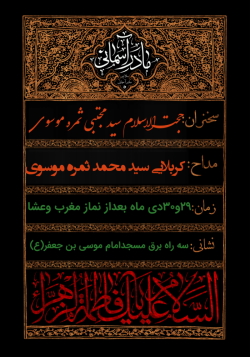 مادر آسمانی
سخنران: حجت الاسلام سید مجتبی ثمره موسوی
مداح: کربلایی سید محمد ثمره موسوی
زمان: ۲۹و۳۰دی ماه بعداز نماز مغرب وعشا
نشانی: سه راه برق مسجدامام موسی بن جعفر(ع)
السلام علیک یا فاطمة الزهرا